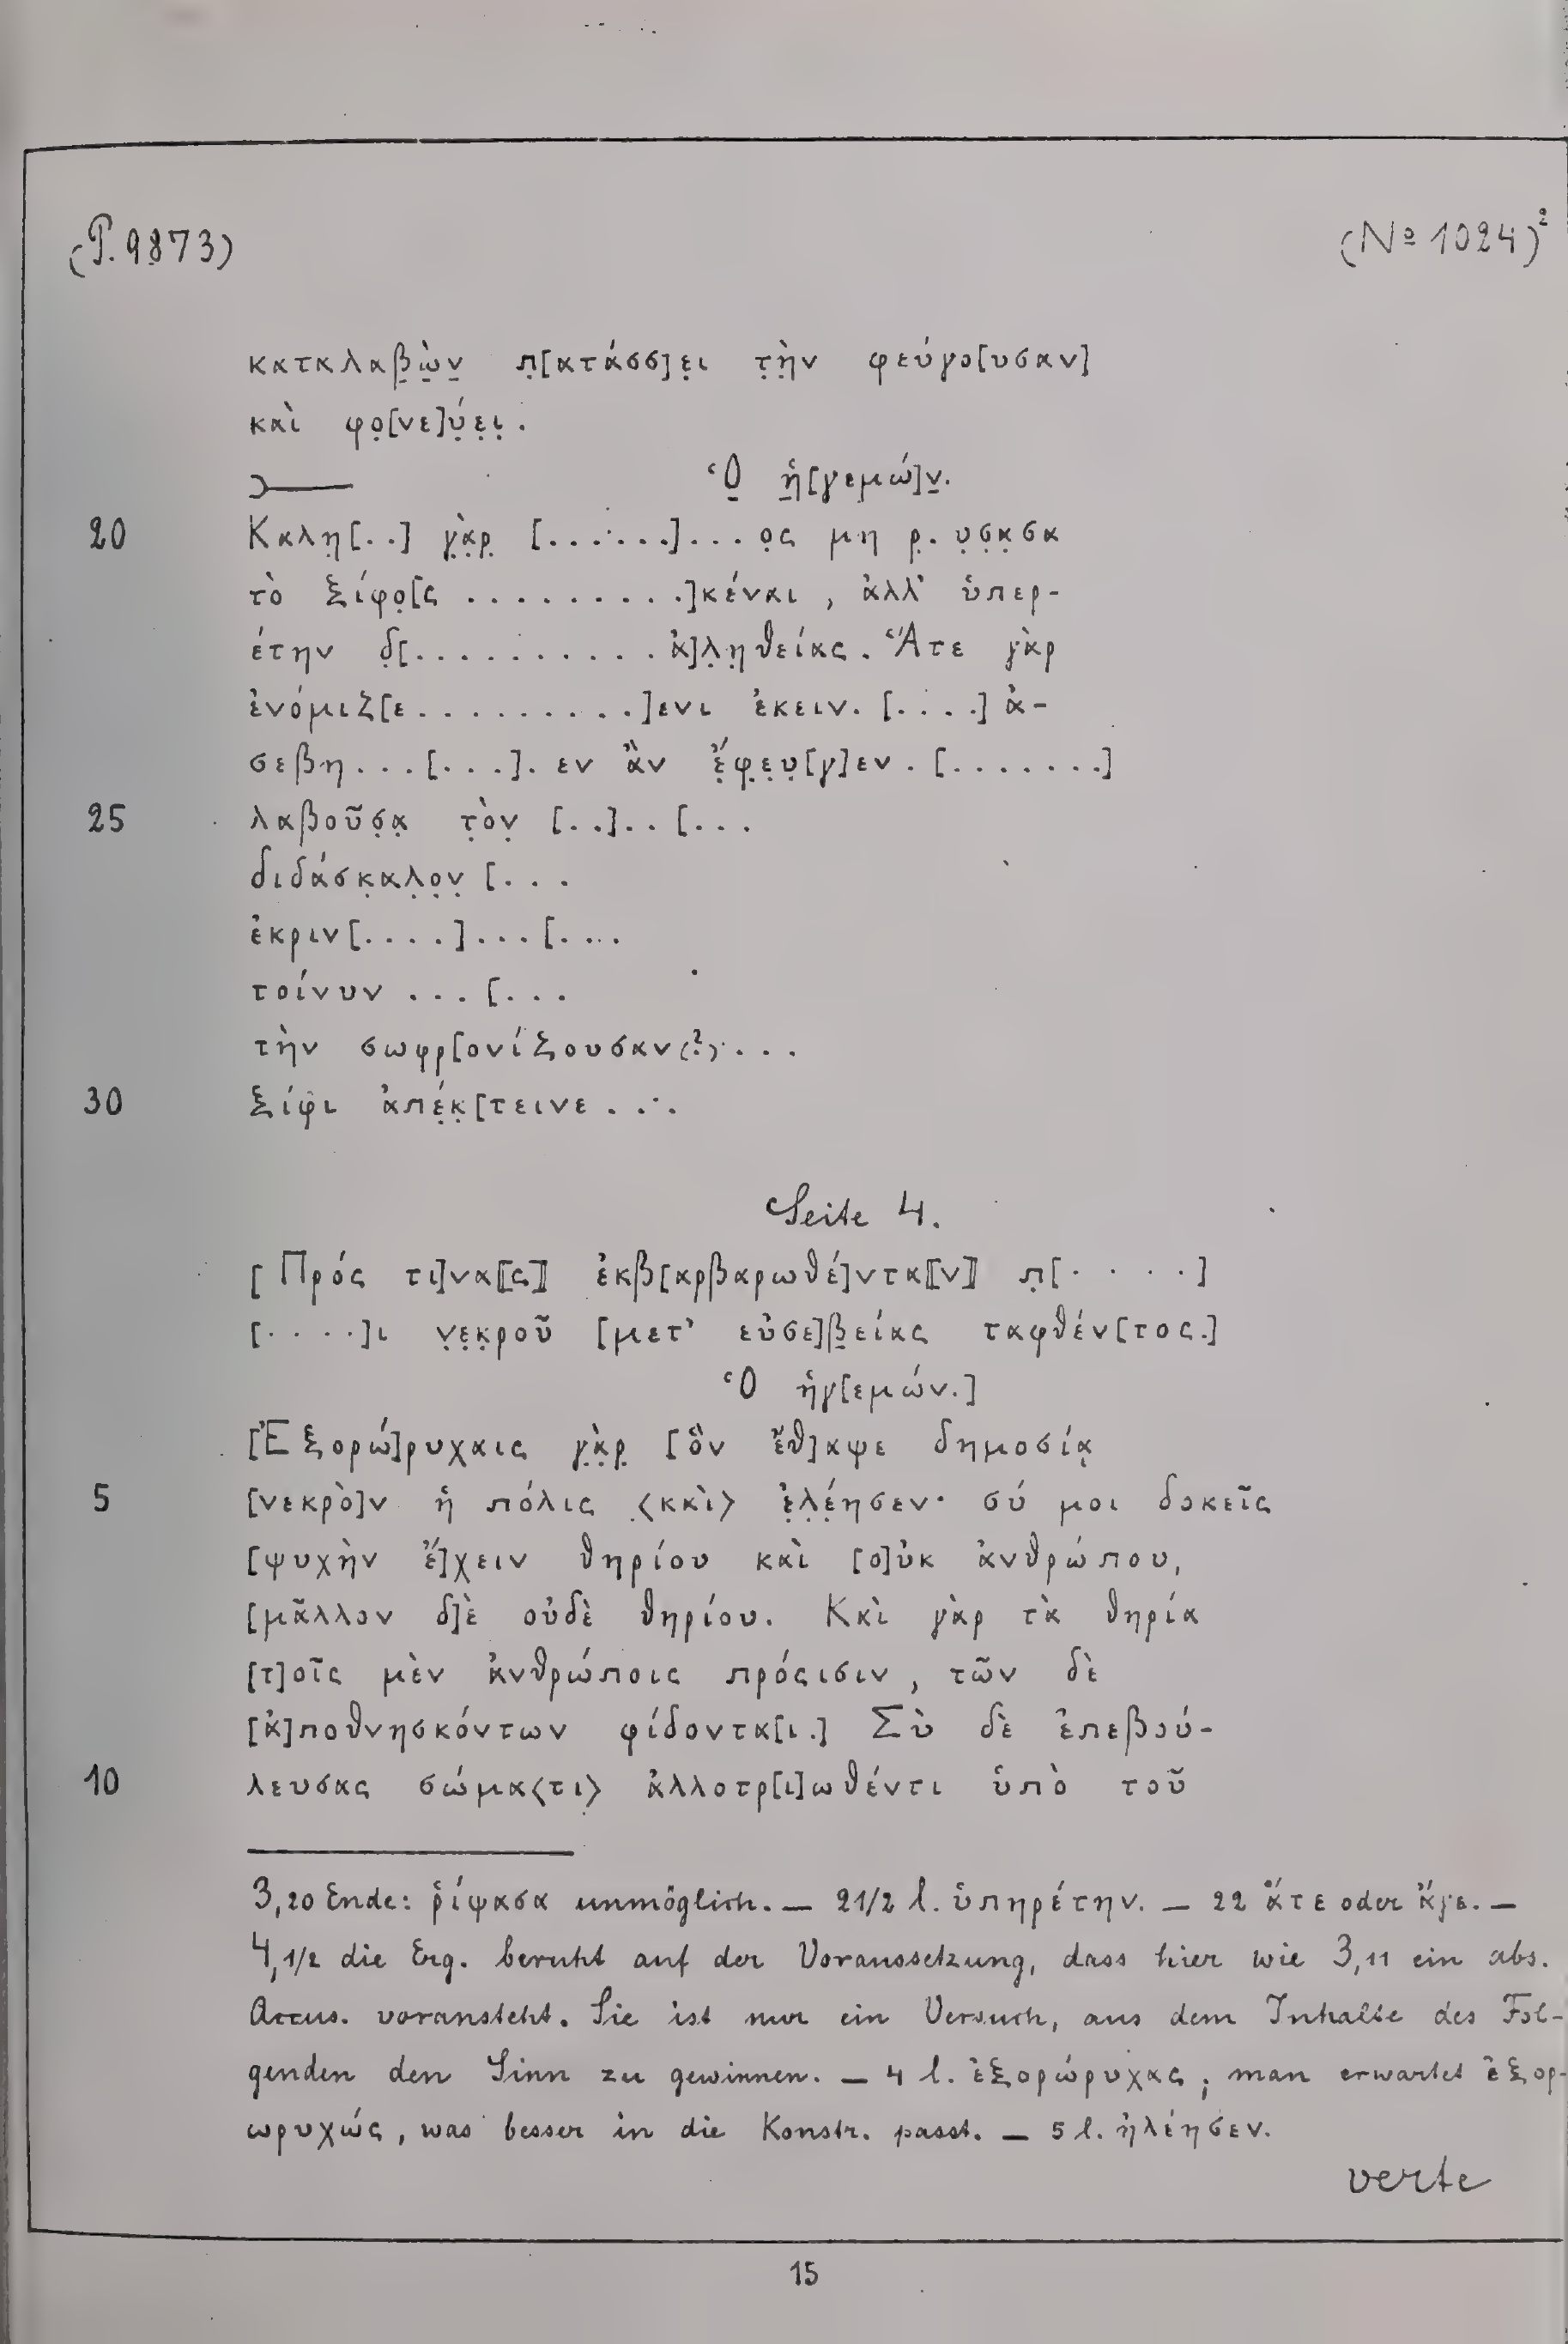 (P. 9873) (№ 1024)²
καταλαβ̣ὼ̣ν̣ π̣[ατάσσ]ε̣ι τ̣ὴ̣ν φεύγο[υσαν]
καὶ φο̣[νε]ύ̣ε̣ι̣.
Ὁ̣ ἡ̣[γεμώ]ν̣.
20 Καλη̣[..] γ̣ὰ̣ρ̣ [.......]...ο̣ς μη ρ̣. υ̣σ̣α̣σα
τὸ ξίφο̣[ς ..........]κέναι, ἀλλ' ὑπερ-
έτην δ̣[........... ἀ]λ̣η̣θείας. Ἅτε γὰρ
ἐνόμιζ[ε..........]ενι ἐκειν. [....] ἀ-
σεβη...[...]. εν ἂν ἔ̣φ̣ε̣υ̣[γ]εν. [.......]
25 λαβοῦσ̣α̣ τ̣ὸν̣ [..]..[...
διδάσκ̣αλ̣ο̣ν̣ [...
ἐκριν[....]...[....
τοίνυν ...[...
τὴν σωφρ[ονίζουσαν(?)...
30 ξίφι ἀπέ̣κ̣[τεινε ...
Seite 4.
[Πρός τι]να[[ς]] ἐκβ[αρβαρωθέ]ντα[[ν]] π̣[....]
[....]ι ν̣ε̣κ̣ροῦ [μετ' εὐσε]β̣είας ταφθέν[τος.]
Ὁ ἡγ[εμών.]
[Ἐξορώ]ρυχαις γ̣ὰ̣ρ̣ [ὃν ἔθ]αψε δημοσίᾳ
5 [νεκρὸ]ν ἡ πόλις 〈καὶ〉 ἐ̣λ̣έ̣ησεν· σύ μοι δοκεῖς
[ψυχὴν ἔ]χειν θηρίου καὶ [ο]ὐκ ἀνθρώπου,
[μᾶλλον δ]ὲ οὐδὲ θηρίου. Καὶ γὰρ τὰ θηρία
[τ]οῖς μὲν ἀνθρώποις πρόςισιν, τῶν δὲ
[ἀ]ποθνησκόντων φίδοντα[ι.] Σὺ δὲ ἐπεβού-
10 λευσας σώμα〈τι〉 ἀλλοτρ[ι]ωθέντι ὑπὸ τοῦ
3,20 Ende: ῥίψασα unmöglich. — 21/2 l. ὑπηρέτην. — 22 ἅτε oder ἄγε. —
4,1/2 die Erg. beruht auf der Voraussetzung, dass hier wie 3,11 ein abs.
Accus. voransteht. Sie ist nur ein Versuch, aus dem Inhalte des Fol-
genden den Sinn zu gewinnen. — 4 l. ἐξορώρυχας; man erwartet ἐξορ-
ωρυχώς, was besser in die Konstr. passt. — 5 l. ἠλέησεν.
verte
15